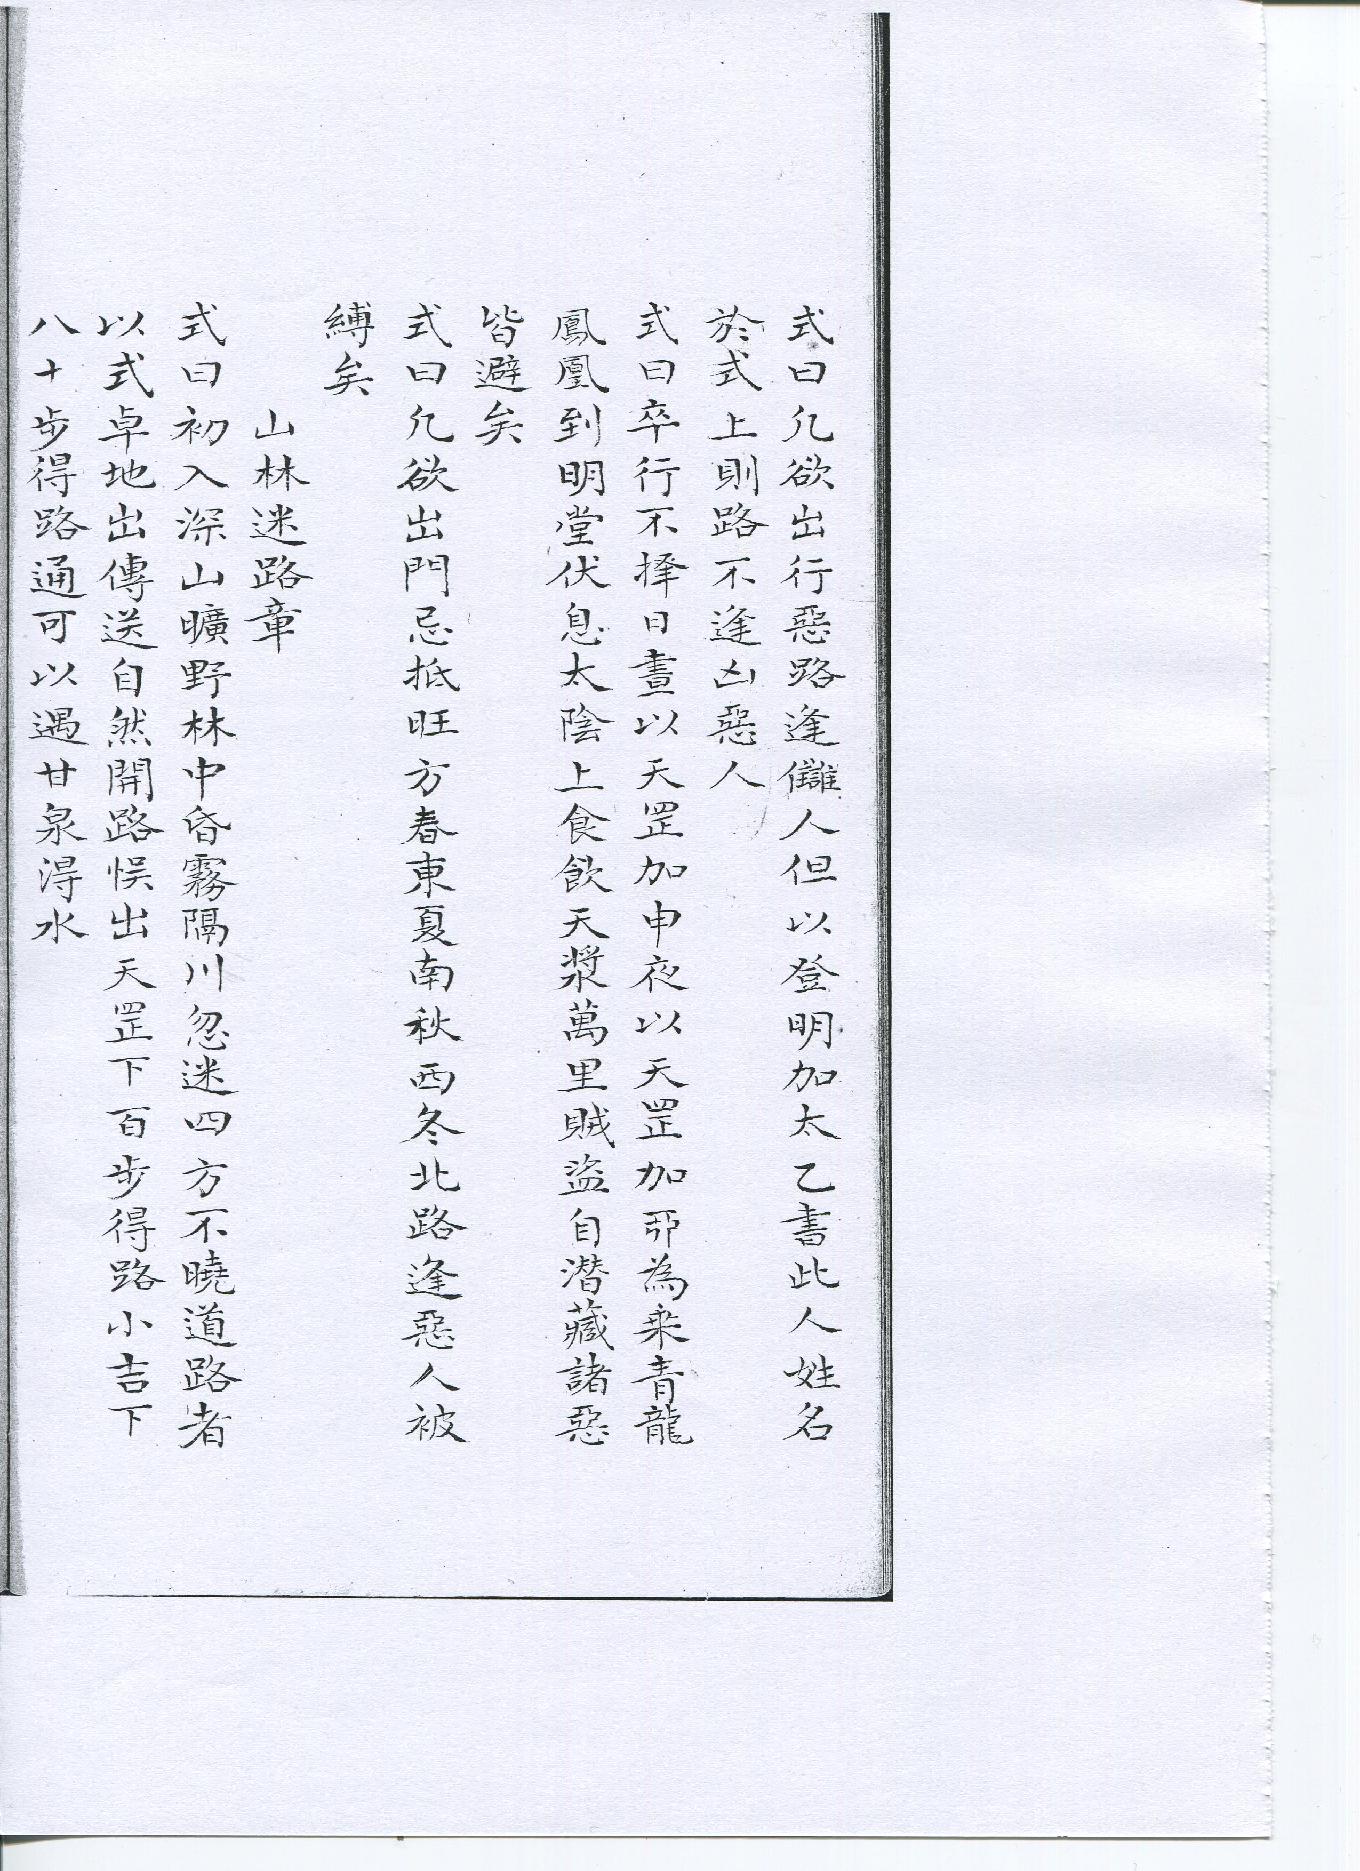 式曰凡欲出行惡路逢讎人但以登明加太乙書此人姓名
於式上則路不逢凶惡人
式曰卒行不擇日晝以天罡加申夜以天罡加邪為乘青龍
鳳凰到明堂伏息太陰上食飲天漿萬里賊盜自潛藏諸惡
皆避矣
式曰凡欲出門忌抵旺方春東夏南秋西冬北路逢惡人被
縛矣
山林迷路章
式曰初入深山曠野林中昏霧隔川忽迷四方不曉道路者
以式卓地出傳送自然開路悮出天罡下百步得路小吉下
八十步得路通可以遇甘泉淂水